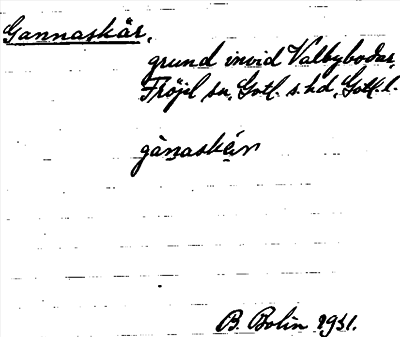 Gannaskär,
grund invid Valbybodar,
Fröjel sn, Gotl. s. hd, Gotl. l.
gànaskèr
B. Bolin 1931.